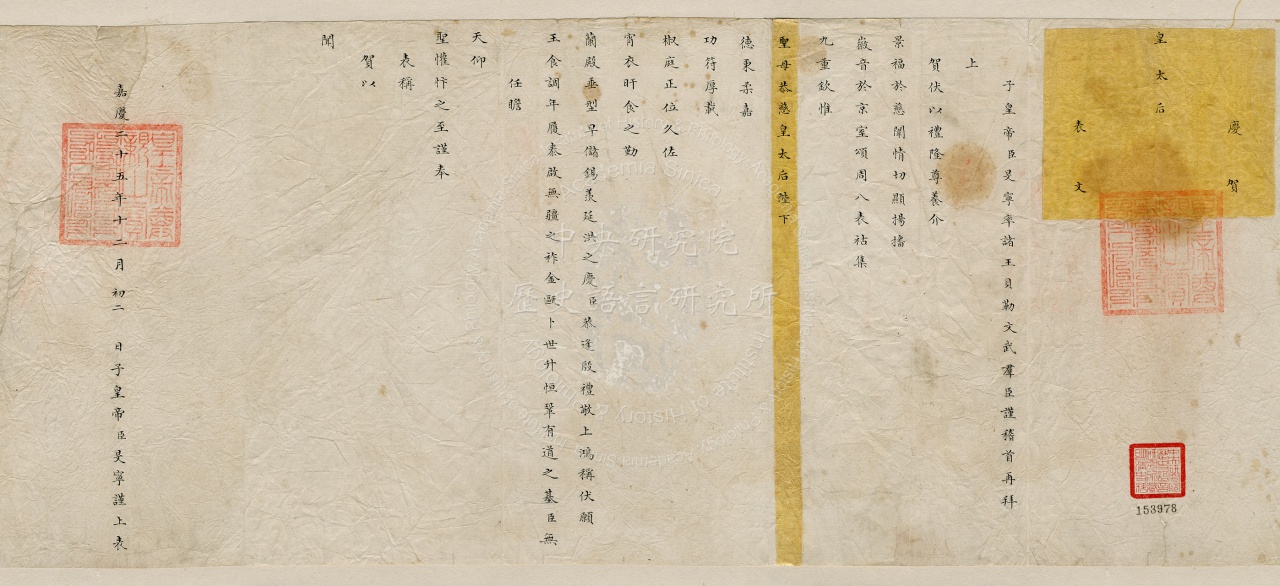 慶賀
皇太后
表文
子皇帝臣旻寧率諸王貝勒文武羣臣謹稽首再拜
上
賀伏以禮隆尊養介
景福於慈闈情切顯揚播
徽音於京室頌周八表祜集
九重欽惟
聖母恭慈皇太后陛下
德秉柔嘉
功符厚載
椒庭正位久佐
宵衣旰食之勤
蘭殿垂型早儲錫羨延洪之慶臣恭逢殷禮敬上鴻稱伏願
玉食調年履泰啟無疆之祚金甌卜世升恒鞏有道之基臣無
任瞻
天仰
聖懽忭之至謹奉
表稱
賀以
聞
嘉慶二十五年十二月初二日子皇帝臣旻寧謹上表
153978
中央研究院
歷史語言研究所